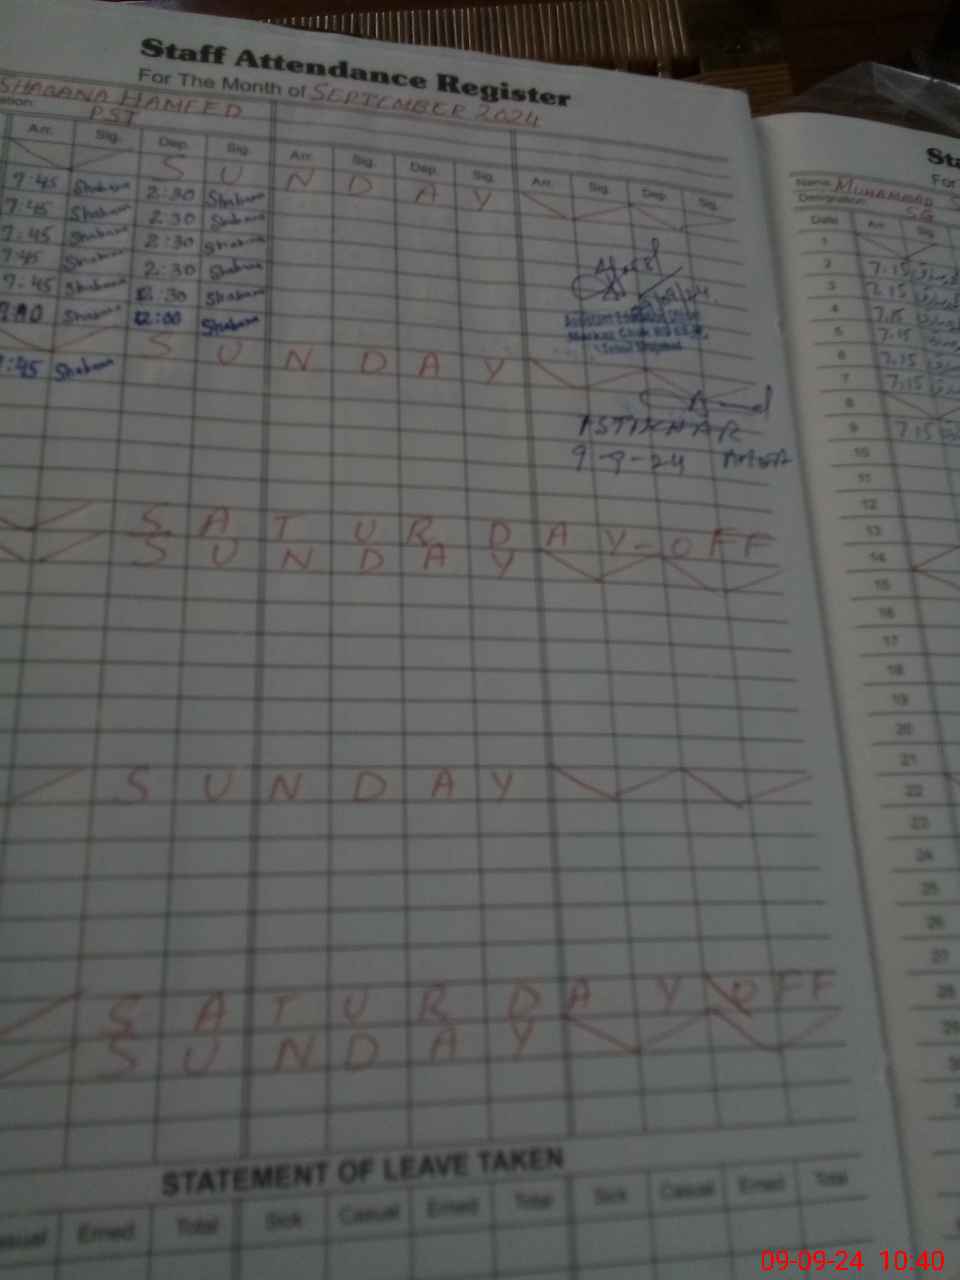 Staff Attendance Register
For The Month of SEPTEMBER 2024
SHABANA HAMEED
PST
Arr. Sig. Dep. Sig. Arr. Sig. Dep. Sig. Arr. Sig. Dep. Sig.
S U N D A Y
7:45 Shabana 2:30 Shabana
7:45 Shabana 2:30 Shabana
7:45 Shabana 2:30 Shabana
7:45 Shabana 2:30 Shabana
7:45 Shabana 2:30 Shabana
Shabana 12:00 Shabana
S U N D A Y
7:45 Shabana
9-9-24
S A T U R D A Y - O F F
S U N D A Y
S U N D A Y
S A T U R D A Y O F F
S U N D A Y
STATEMENT OF LEAVE TAKEN
Casual Erned Total Sick Casual Erned Total Sick Casual Erned Total
Name: MUHAMMAD
Designation:
Date Arr. Sig.
1
2 7.15
3 7.15
4 7.15
5 7.15
6 7.15
7 7.15
8
9 7.15
10
11
12
13
14
15
16
17
18
19
20
21
22
23
24
25
26
27
28
29
09-09-24 10:40